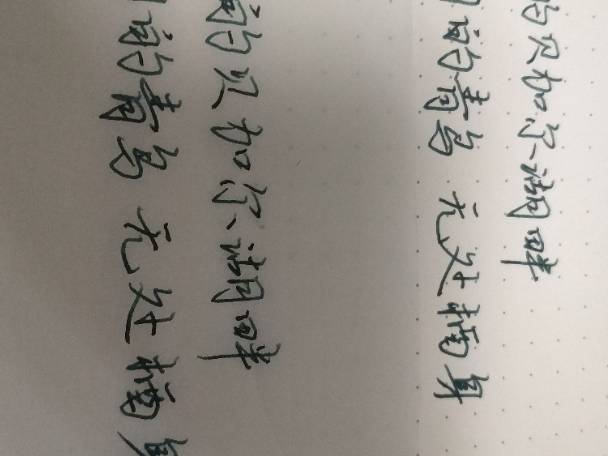 的贝加尔湖畔
的青鸟 无处栖身
的贝加尔湖畔
的青鸟 无处栖身